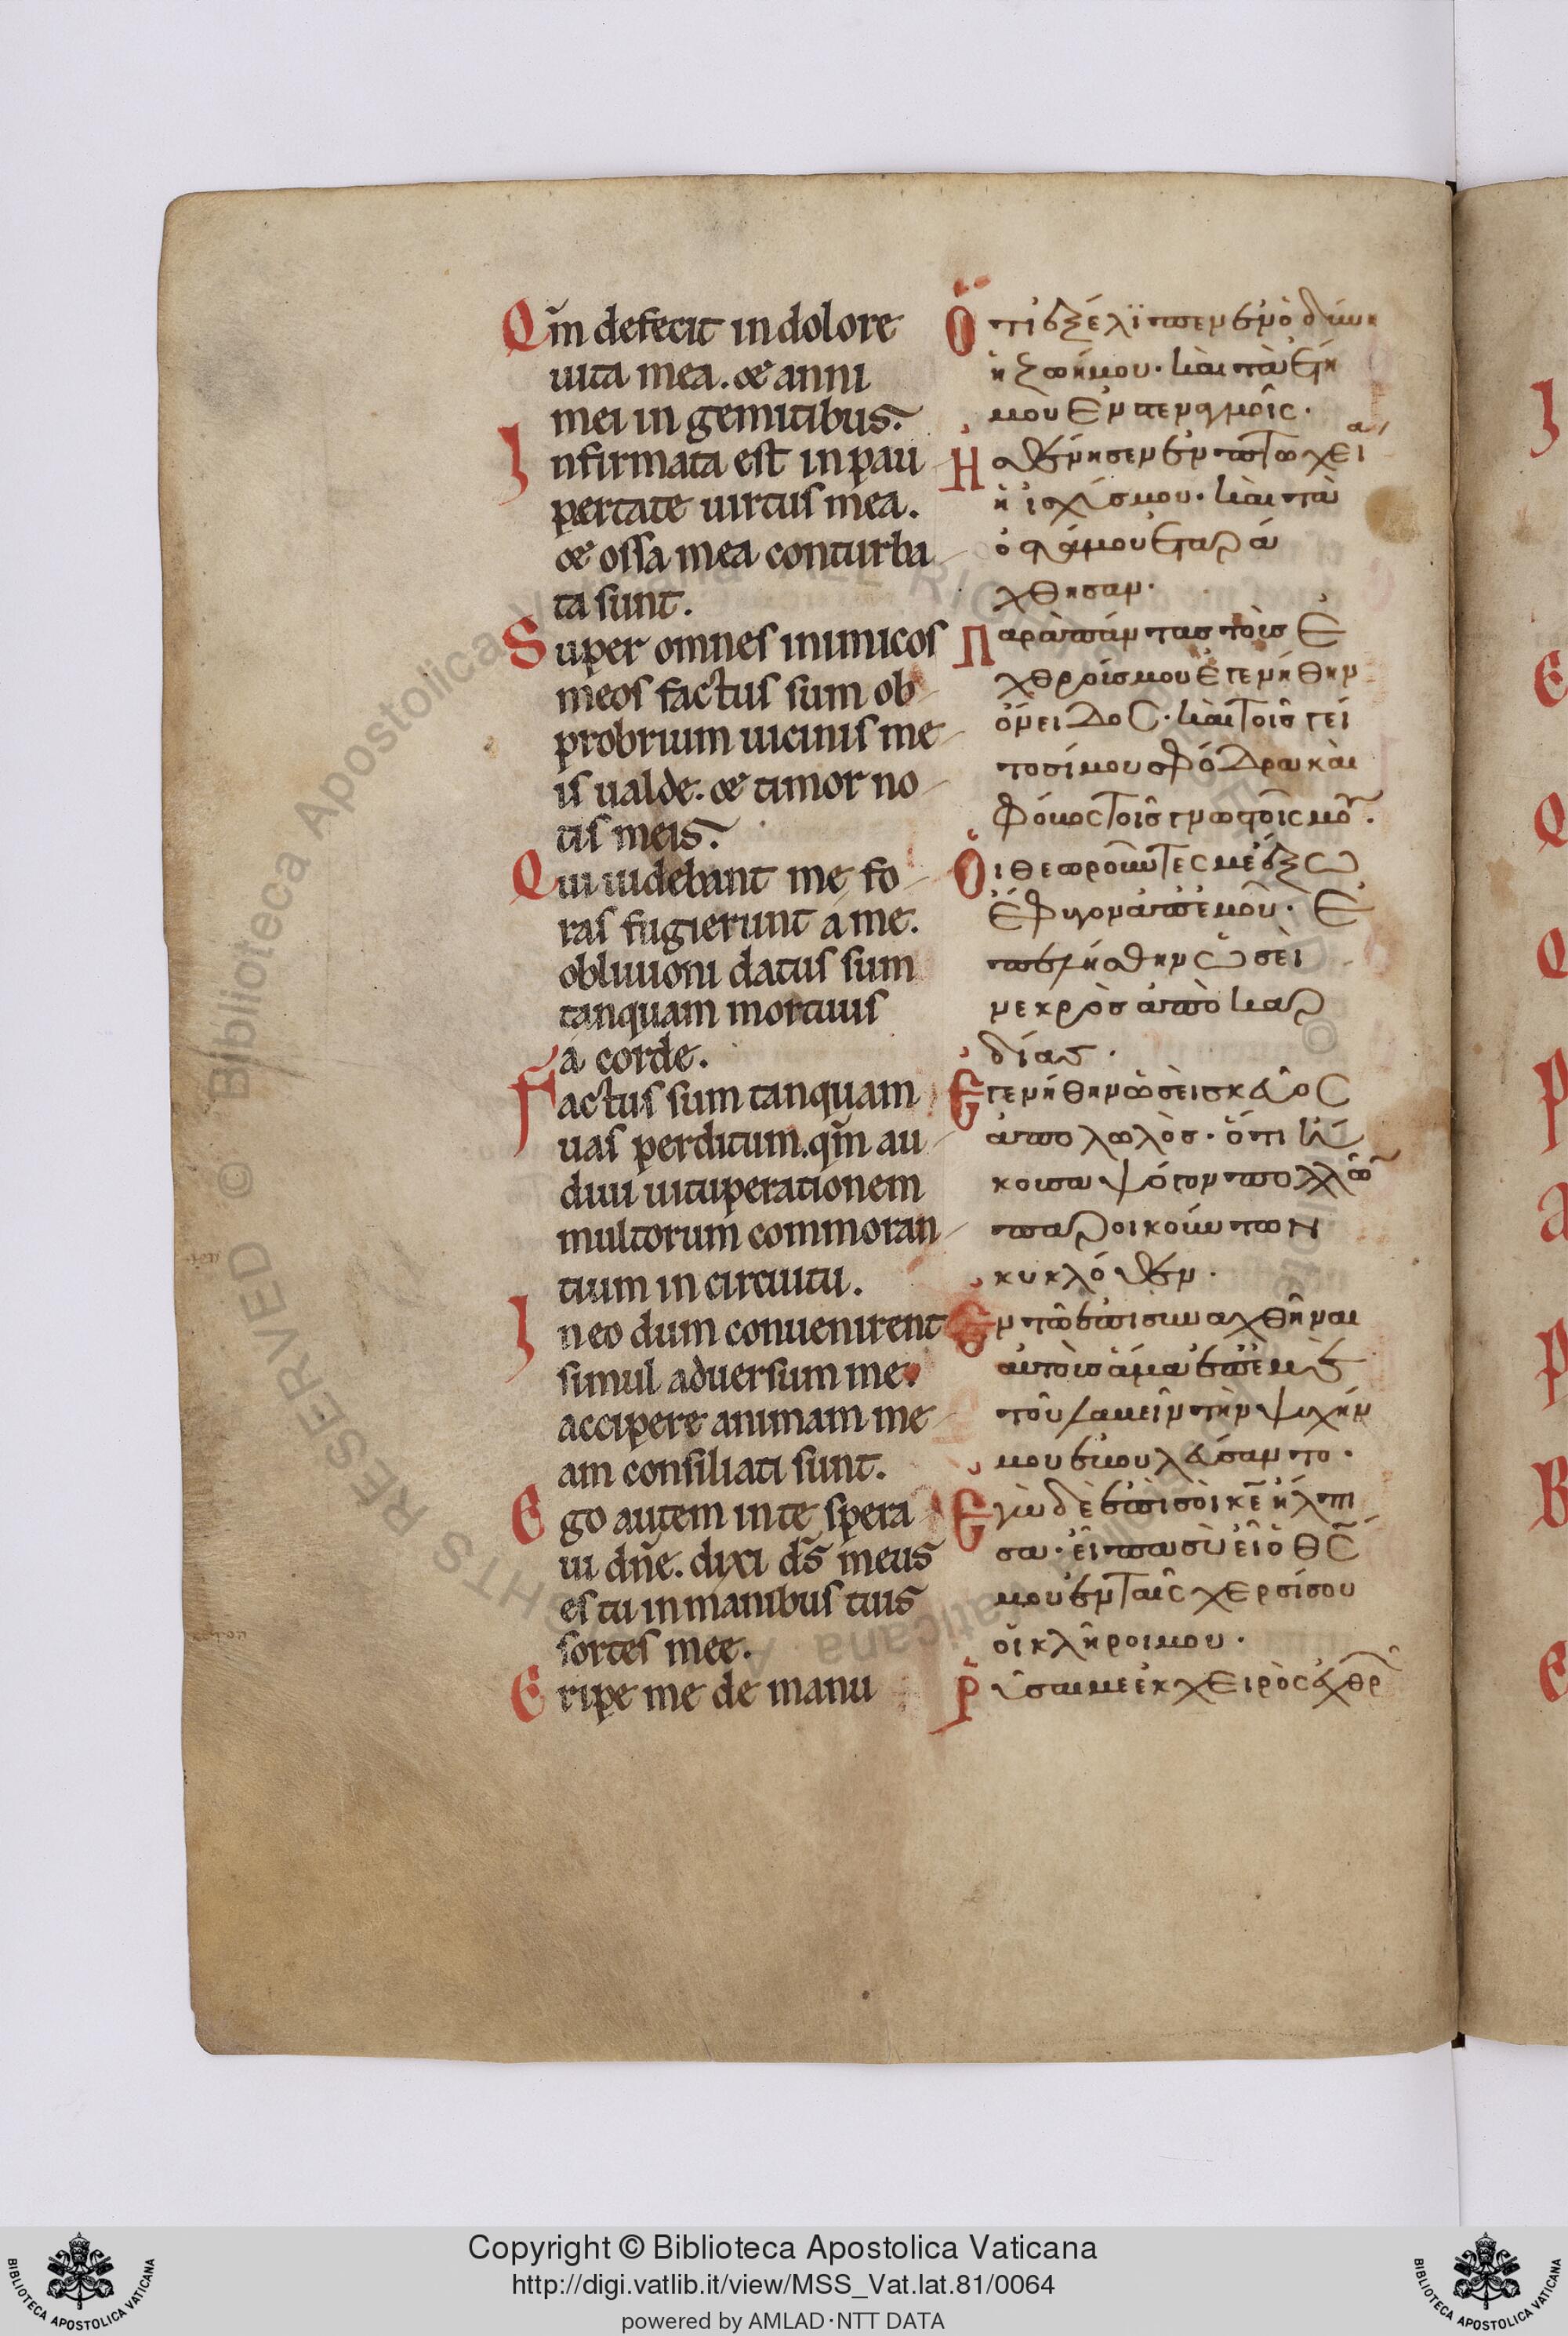 Qm̄ defecit in dolore
uita mea. & anni
mei in gemitibus.
Infirmata est in pau
pertate uirtus mea.
& ossa mea conturba
ta sunt.
Super omnes inimicos
meos factus sum ob
probrium uicinis me
is ualde. & timor no
tis meis.
Qui uidebant me fo
ras fugierunt a me.
obliuioni datus sum
tanquam mortuus
a corde.
Factus sum tanquam
uas perditum. qm̄ au
diui uituperationem
multorum commoran
tium in circuitu.
In eo dum conuenirent
simul aduersum me.
accipere animam me
am consiliati sunt.
Ego autem in te spera
ui dn̄e. dixi ds̄ meus
es tu in manibus tuis
sortes mee.
Eripe me de manu
Ὅτι ἐξέλϊπεν ἐν ὀδύν
ἡ ζωή μου· καὶ τὰ ἔτη
μοὺ ἐν στεναγμοῖς·
Ἠσθένησεν ἐν πτωχεία
ἡ ἰσχύς μου· καὶ τὰ
ὀστά μου ἐταρά
χθησαν·
Παρὰ πάντας τοὺς ἐ
χθρούς μου ἐγενήθην
όνειδος· καὶ τοῖς γεί
τοσί μου σφόδρα καὶ
φόβος τοῖς γνωστοῖς μου.
Οἱ θεωροῦντες με ἔξω
ἔφυγον ἀπ' ἐμοῦ· Ἐ
πελήσθην ὡσεὶ
νεκρὸς ἀπὸ καρ
δίας·
Ἐγενήθην ὡσεὶ σκεῦος
ἀπολωλὸς· ὅτι ἤ
κουσα ψόγον πολλῶν
παροικούντων
κυκλόθεν·
Ἐν τῶ ἐπισυναχθῆναι
αὐτοὺς ἅμα ἐπ' ἐμὲ
τοῦ λαβεῖν τὴν ψυχήν
μου ἐβουλεύσαντο·
Ἐγὼ δὲ ἐπὶ σοὶ κε̄ ἤλπι
σα· εἶπα σὺ εἶ ὁ θς̄
μου ἐν ταῖς χερσί σου
οἱ κλῆροι μου·
Ῥῦσαι με ἐκ χειρὸς ἐχθρ
Copyright © Biblioteca Apostolica Vaticana
http://digi.vatlib.it/view/MSS_Vat.lat.81/0064
powered by AMLAD·NTT DATA
BIBLIOTECA APOSTOLICA VATICANA
BIBLIOTECA APOSTOLICA VATICANA